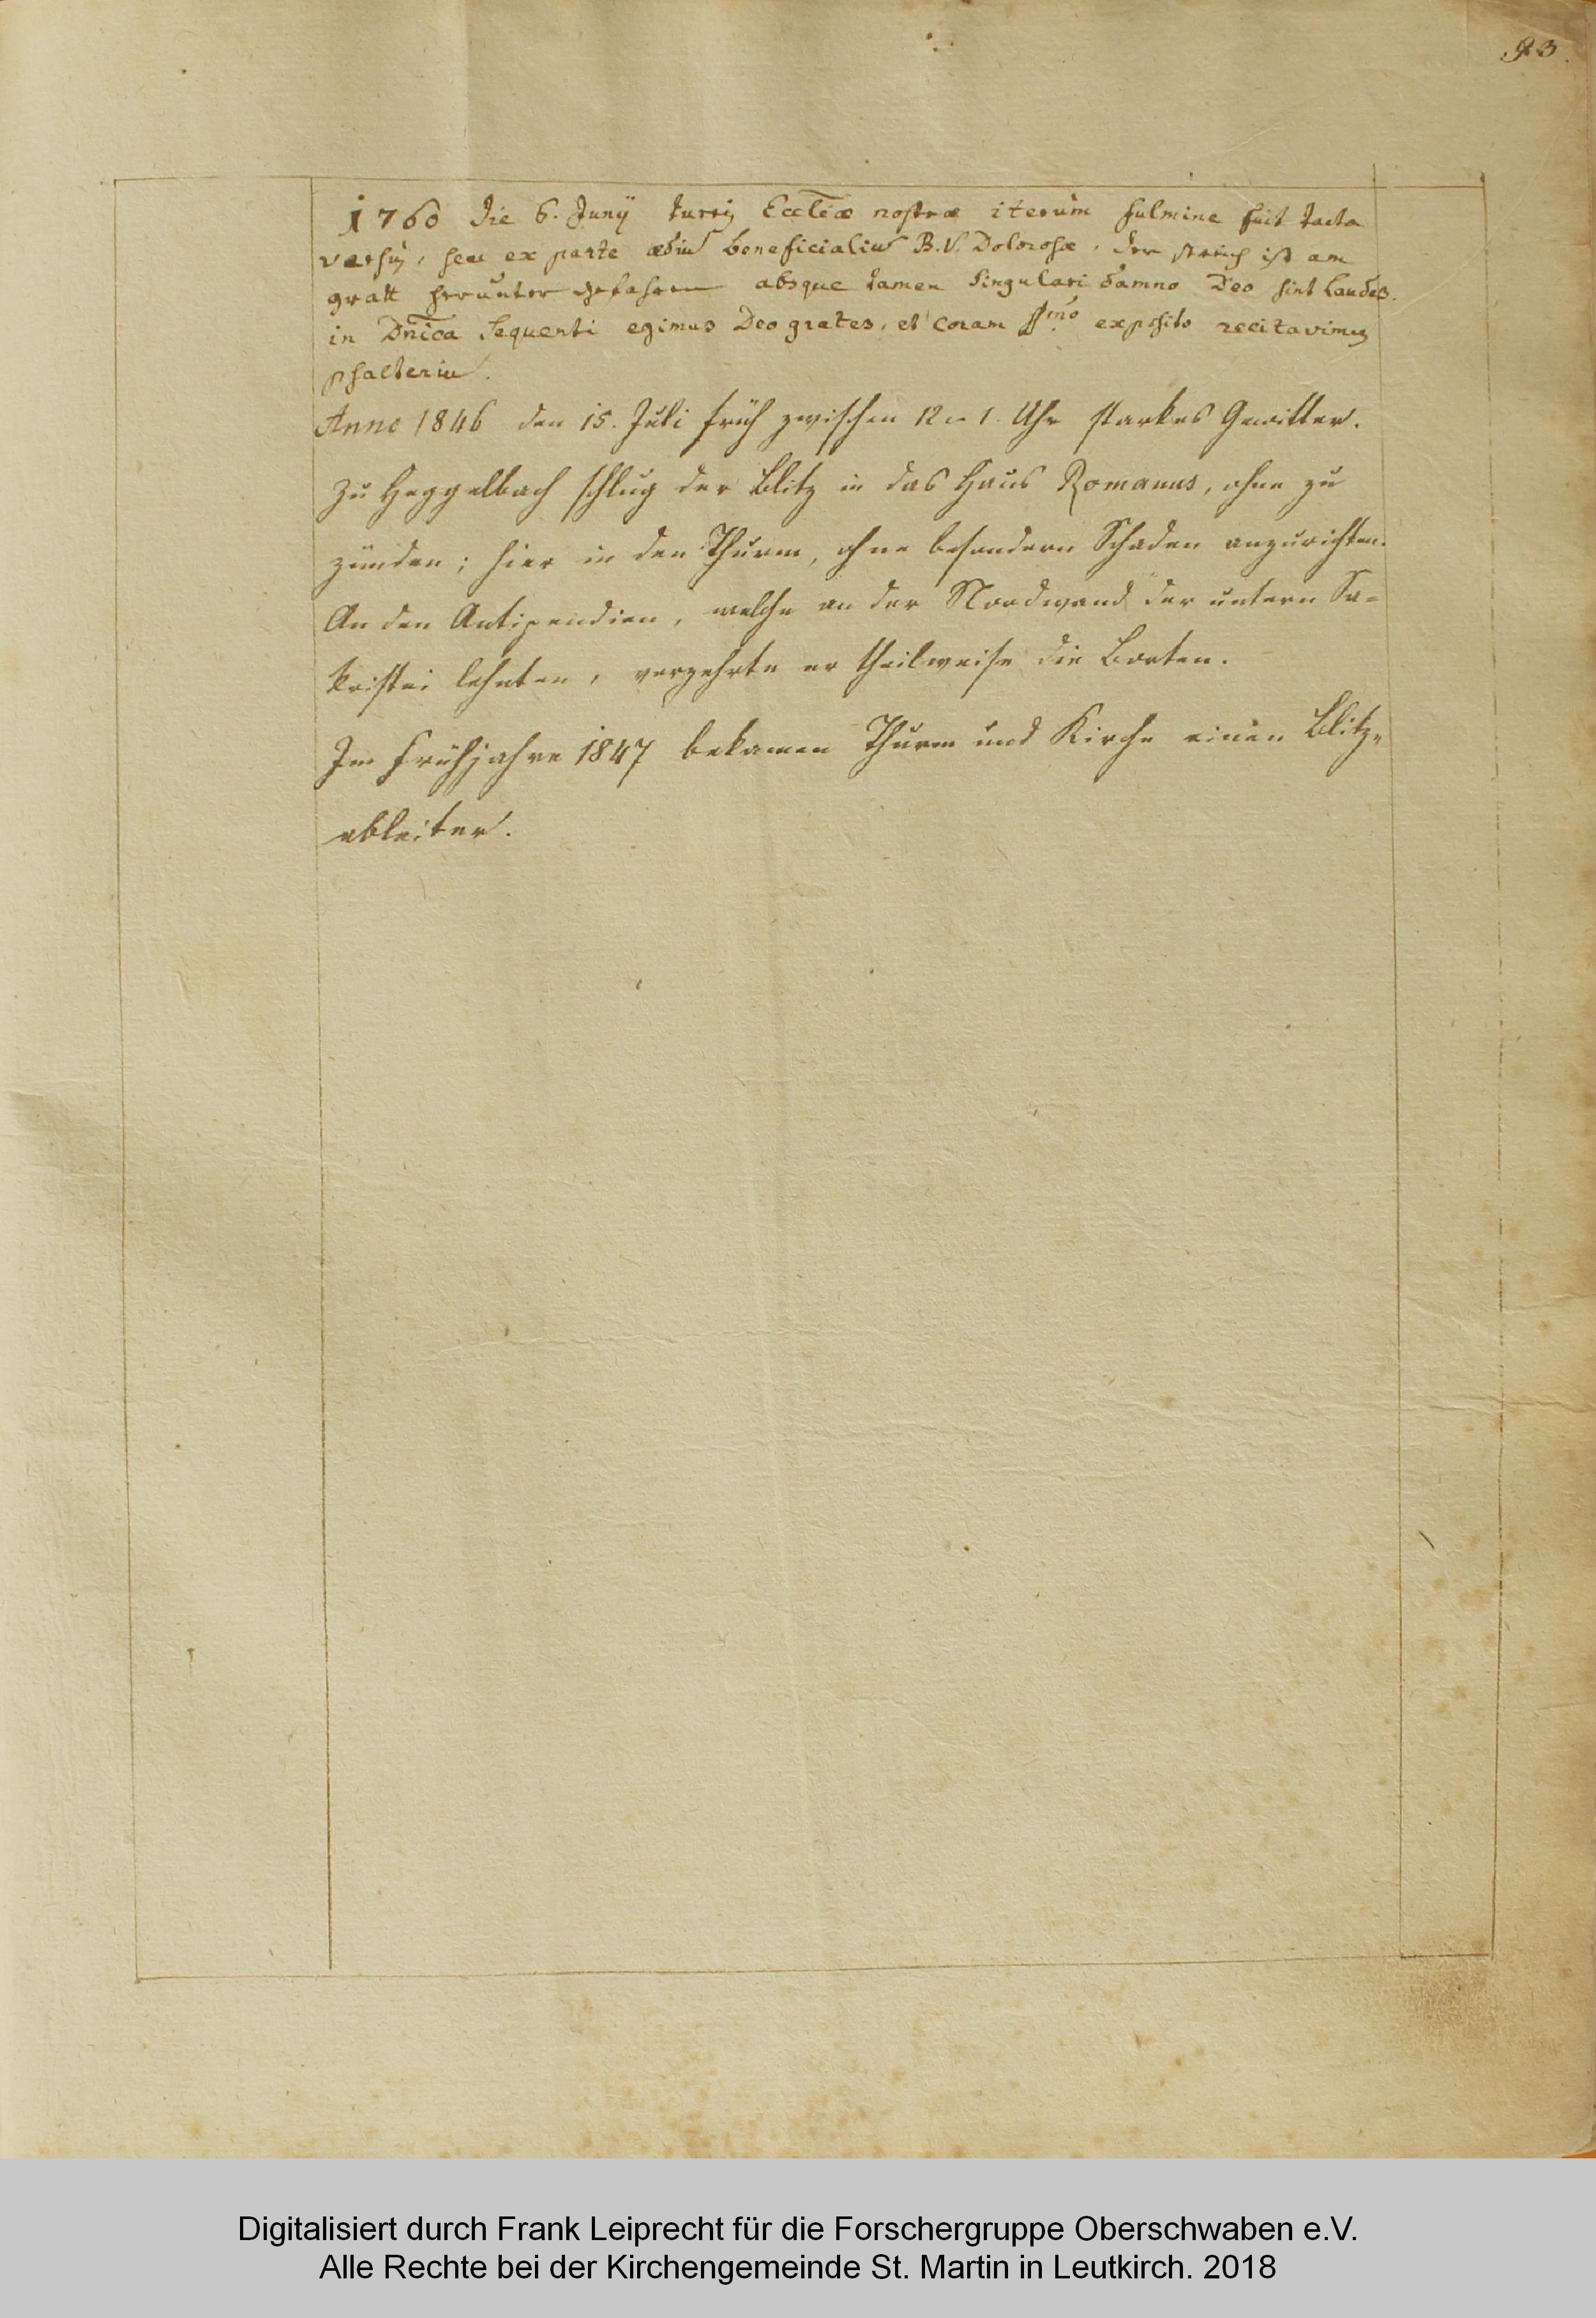 93.
1760 die 6. Junÿ turris Eccl̅iæ nostræ iterùm fulmine fuit tacta
versùs, seu ex parte ædiu̅ beneficialiu̅ B. V. Dolorosæ, der streich ist am
gratt herunter gefahren absque tamen singulari damno Deo sint laudes.
in Dn̅ica sequenti egimus Deo grates, et coram SSmo exposito recitavimus
psalteriu̅.
Anno 1846 den 15. Juli früh zwischen 12 u 1. Uhr starkes Gewitter.
Zu Heggelbach schlug der Blitz in das Haus Romanus, ohne zu
zünden; hier in den Thurm, ohne besondern Schaden anzurichten.
An den Antipendien, welche an der Nordwand der untern Sa=
kristei lehnten, verzehrte er theilweise die Borten.
Im Frühjahre 1847 bekamen Thurm und Kirche einen Blitz=
ableiter.
Digitalisiert durch Frank Leiprecht für die Forschergruppe Oberschwaben e.V.
Alle Rechte bei der Kirchengemeinde St. Martin in Leutkirch. 2018